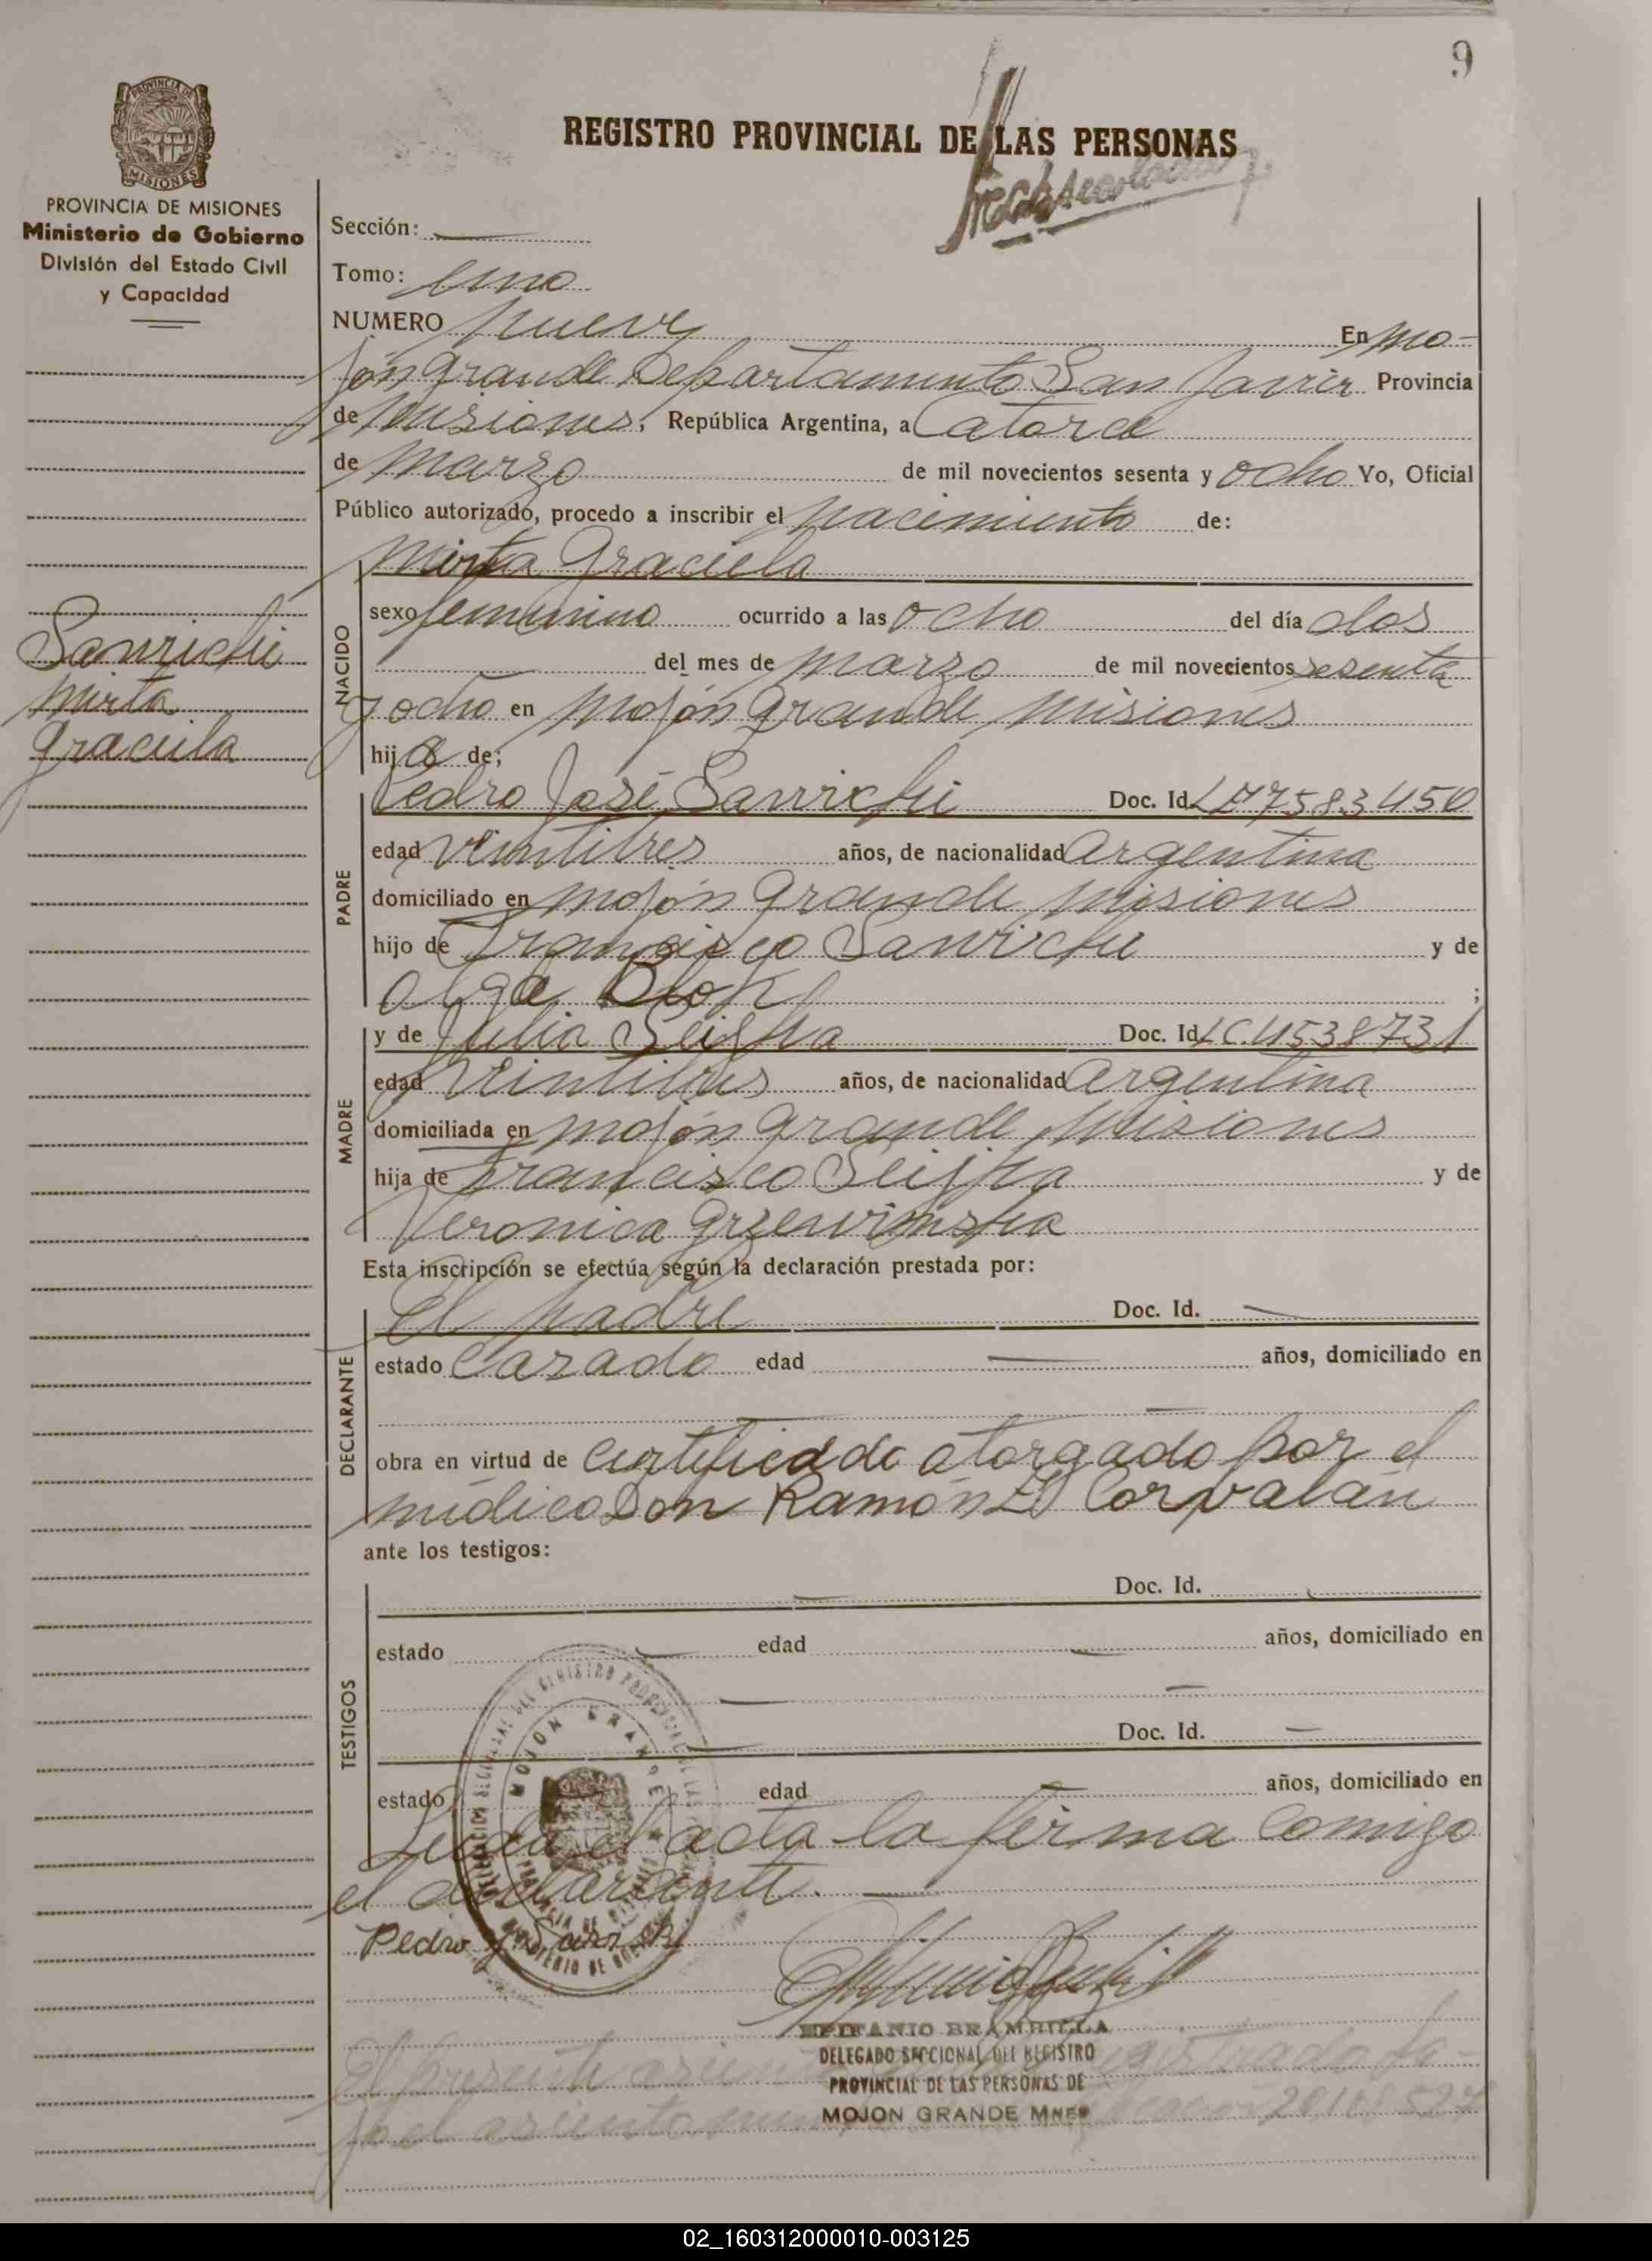 9
REGISTRO PROVINCIAL DE LAS PERSONAS
PROVINCIA DE
MISIONES
PROVINCIA DE MISIONES
Ministerio de Gobierno
División del Estado Civil
y Capacidad
Sección:
Tomo: Uno
NUMERO nueve En Mo-
jón Grande Departamento San Javier Provincia
de Misiones, República Argentina, a Catorce
de Marzo de mil novecientos sesenta y ocho Yo, Oficial
Público autorizado, procedo a inscribir el nacimiento de:
Mirta Graciela
Sawrichi
Mirta
Graciela
NACIDO
sexo femenino ocurrido a las ocho del día dos
del mes de marzo de mil novecientos sesenta
y ocho en Mojón Grande Misiones
hija de;
PADRE
Pedro José Sawrichi Doc. Id. 7583450
edad veintitres años, de nacionalidad Argentina
domiciliado en Mojón Grande Misiones
hijo de Francisco Sawrichi y de
Olga Blok ;
MADRE
y de Julia Doc. Id. LC.4538731
edad veintitres años, de nacionalidad Argentina
domiciliada en Mojón Grande Misiones
hija de Francisco y de
Veronica
Esta inscripción se efectúa según la declaración prestada por:
DECLARANTE
El padre Doc. Id.
estado Casado edad años, domiciliado en
obra en virtud de certificado otorgado por el
médico Don Ramón Corvalán
ante los testigos:
TESTIGOS
Doc. Id.
estado edad años, domiciliado en
Doc. Id.
estado edad años, domiciliado en
Leida el acta la firma Comigo
el declarante.
Pedro J. Sawrichi
MOJON GRANDE
EPIFANIO BRAMBILLA
DELEGADO SECCIONAL DEL REGISTRO
PROVINCIAL DE LAS PERSONAS DE
MOJON GRANDE Mnes
El presente
asiento
02_160312000010-003125